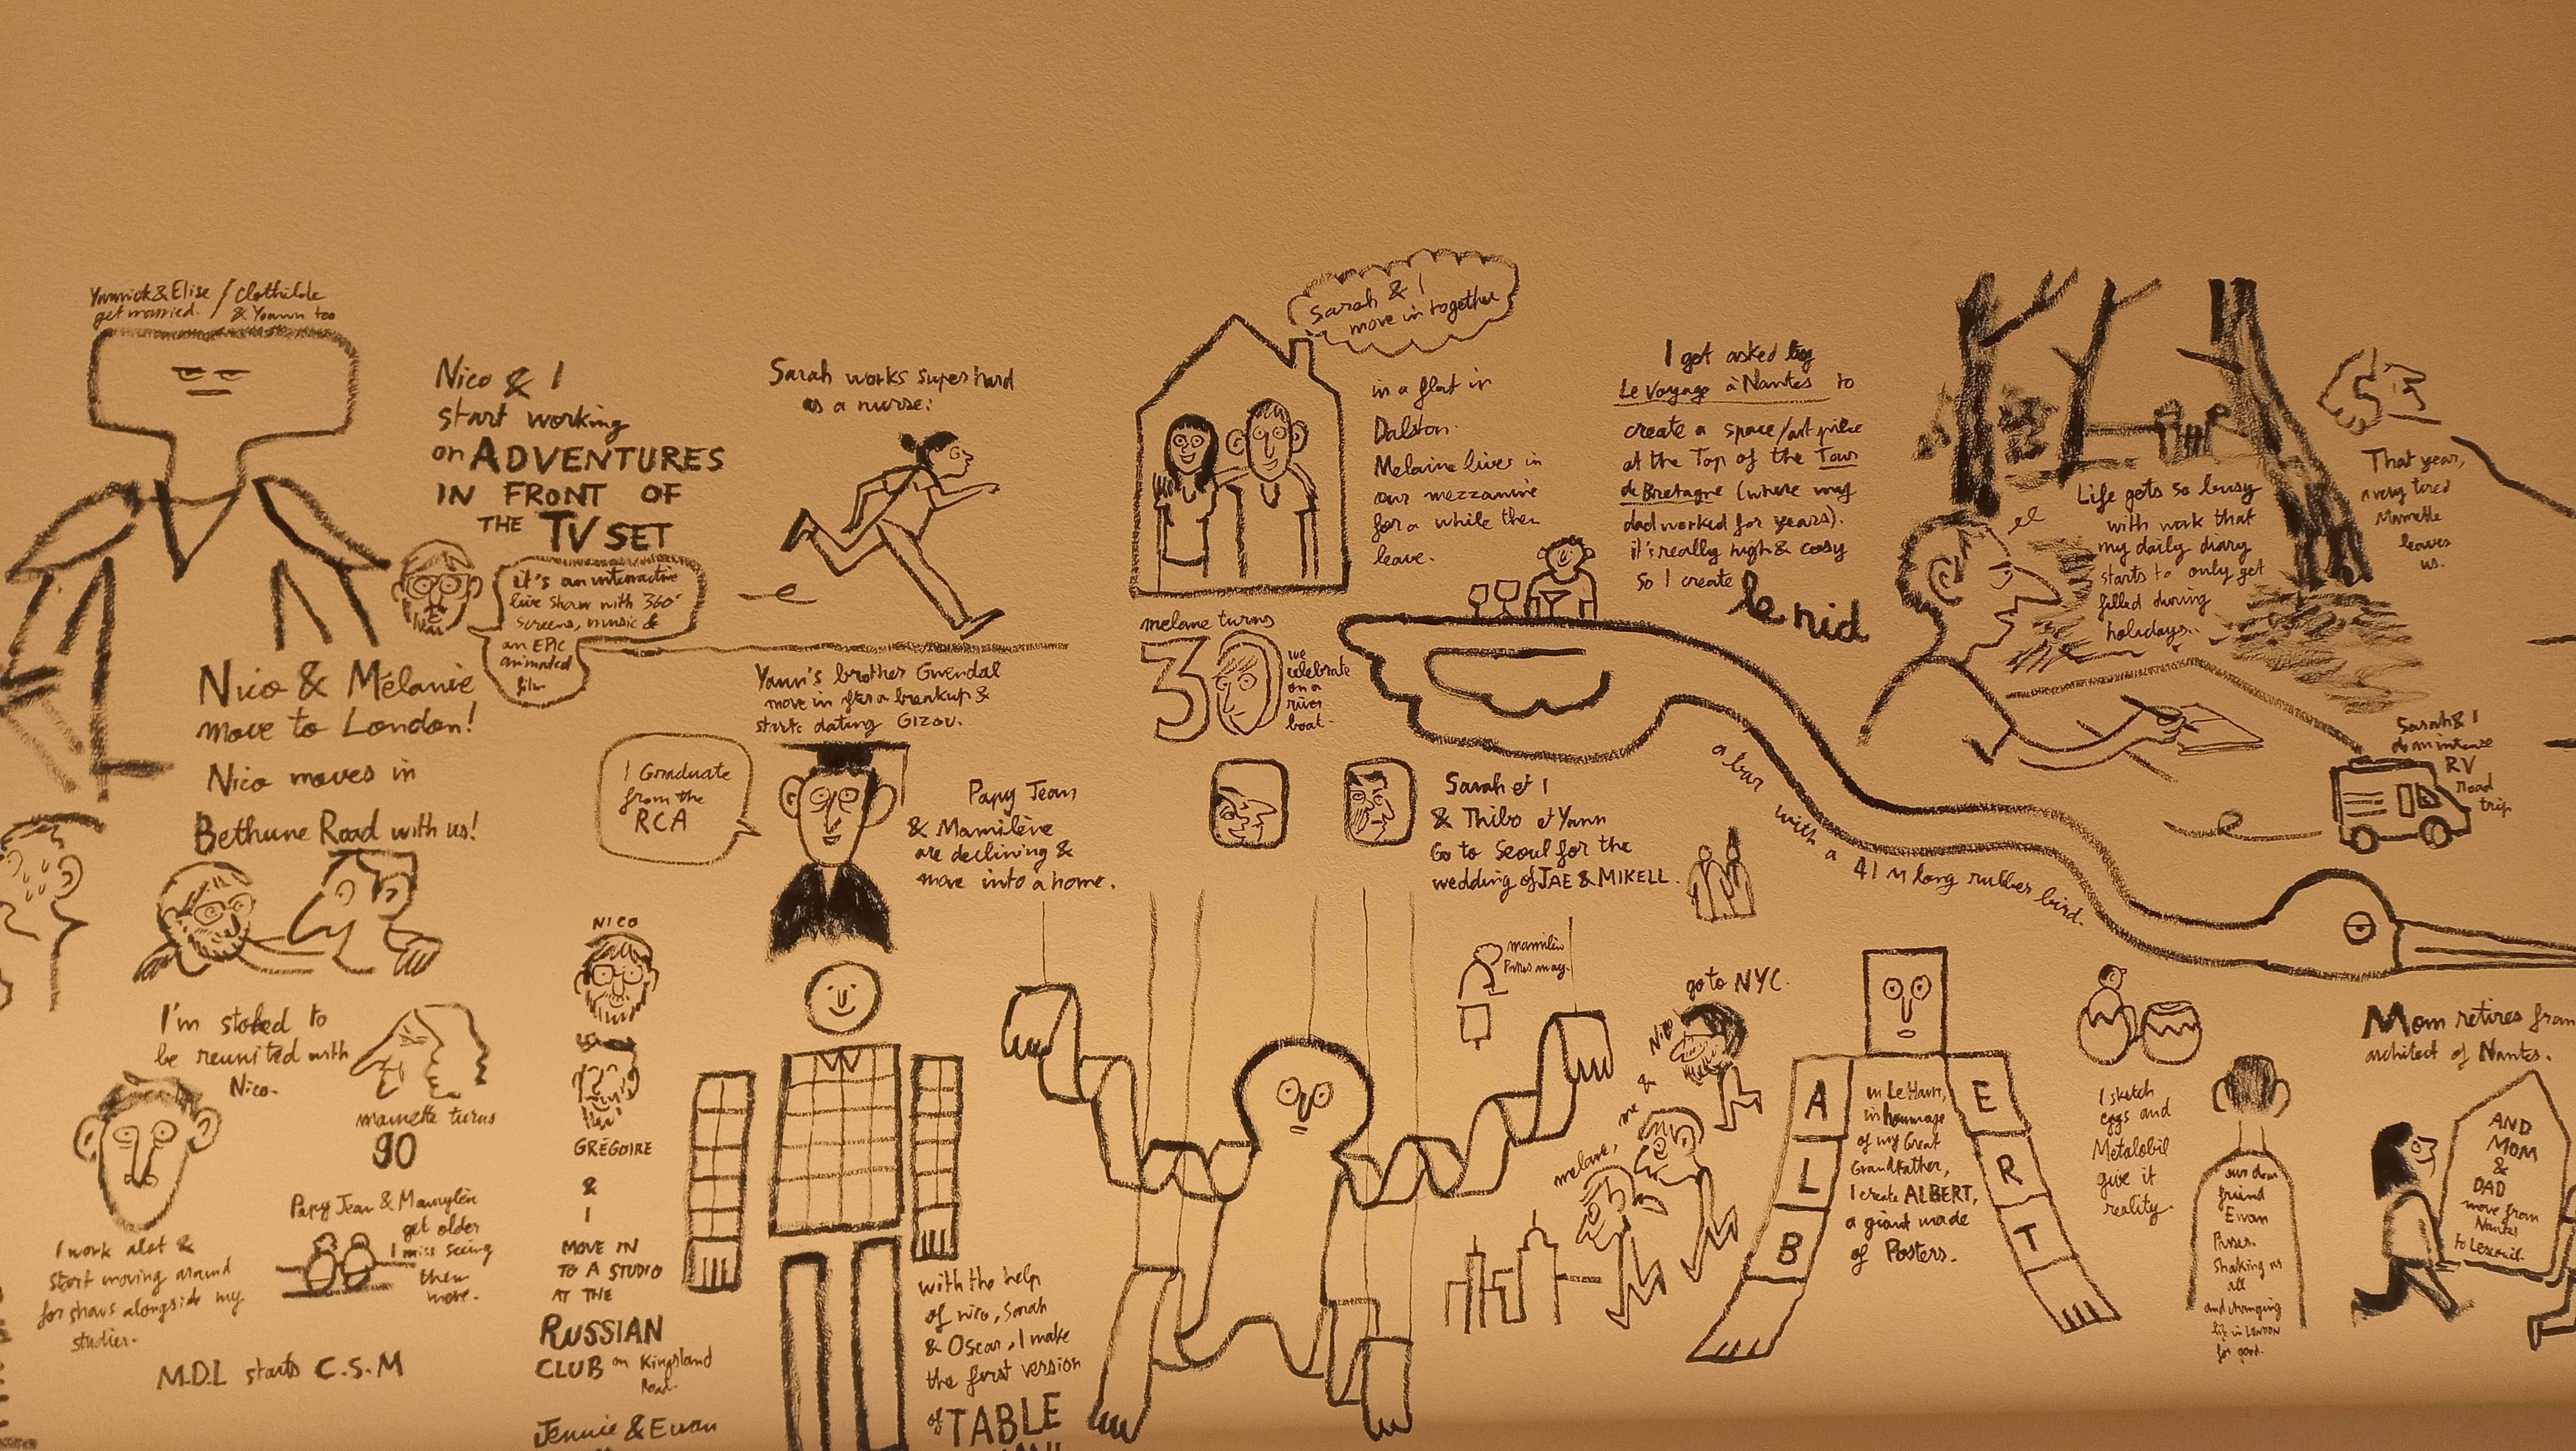 Yannick & Elise / Clothilde
get married. / & Yoann too
Nico & I
start working
on ADVENTURES
IN FRONT OF
THE TV SET
it's an interactive
live show with 360°
screens, music &
an EPIC
animated
film
Nico & Mélanie
move to London!
Nico moves in
Bethune Road with us!
I'm stoked to
be reunited with
Nico.
mamette turns
90
Papy Jean & Mamylèn
get older
I miss seeing
them
more.
I work alot &
start moving around
for shows alongside my
studies.
M.D.L starts C.S.M
Sarah works super hard
as a nurse:
Yann's brother Gwendal
move in after a breakup &
starts dating GIZOU.
I Graduate
from the
RCA
Papy Jean
& Mamilène
are declining &
move into a home.
NICO
GRÉGOIRE
&
I
MOVE IN
TO A STUDIO
AT THE
RUSSIAN
CLUB on Kingsland
Road.
Jennie & Ewan
with the help
of nico, Sarah
& Oscar, I make
the first version
of TABLE
Sarah & I
move in together
in a flat in
Dalston.
Melanie lives in
our mezzanine
for a while then
leave.
melanie turns
30
we
celebrate
on a
river
boat.
Sarah et I
& Thibo et Yann
Go to Seoul for the
wedding of JAE & MIKELL.
mamilèn
Passes away.
go to NYC.
Nico
&
me
melanie,
I get asked by
Le Voyage à Nantes to
create a space/art piece
at the Top of the Tour
de Bretagne (where my
dad worked for years).
it's really high & cosy
so I create le nid
a bar with a 41 M long rubber bird.
A
L
B
E
R
T
in Le Havre,
in hommage
of my Great
Grandfather,
I create ALBERT,
a giant made
of Posters.
Life gets so busy
with work that
my daily diary
starts to only get
filled during
holidays.
That year,
a very tired
Mamette
leaves
us.
Sarah & I
do an intense
RV
road
trip
I sketch
eggs and
Metalobil
give it
reality.
our dear
friend
Ewan
Passes.
Shaking us
all
and changing
life in London
for good.
Mom retires from
architect of Nantes.
AND
MOM
&
DAD
move from
Nantes
to Lesconil.